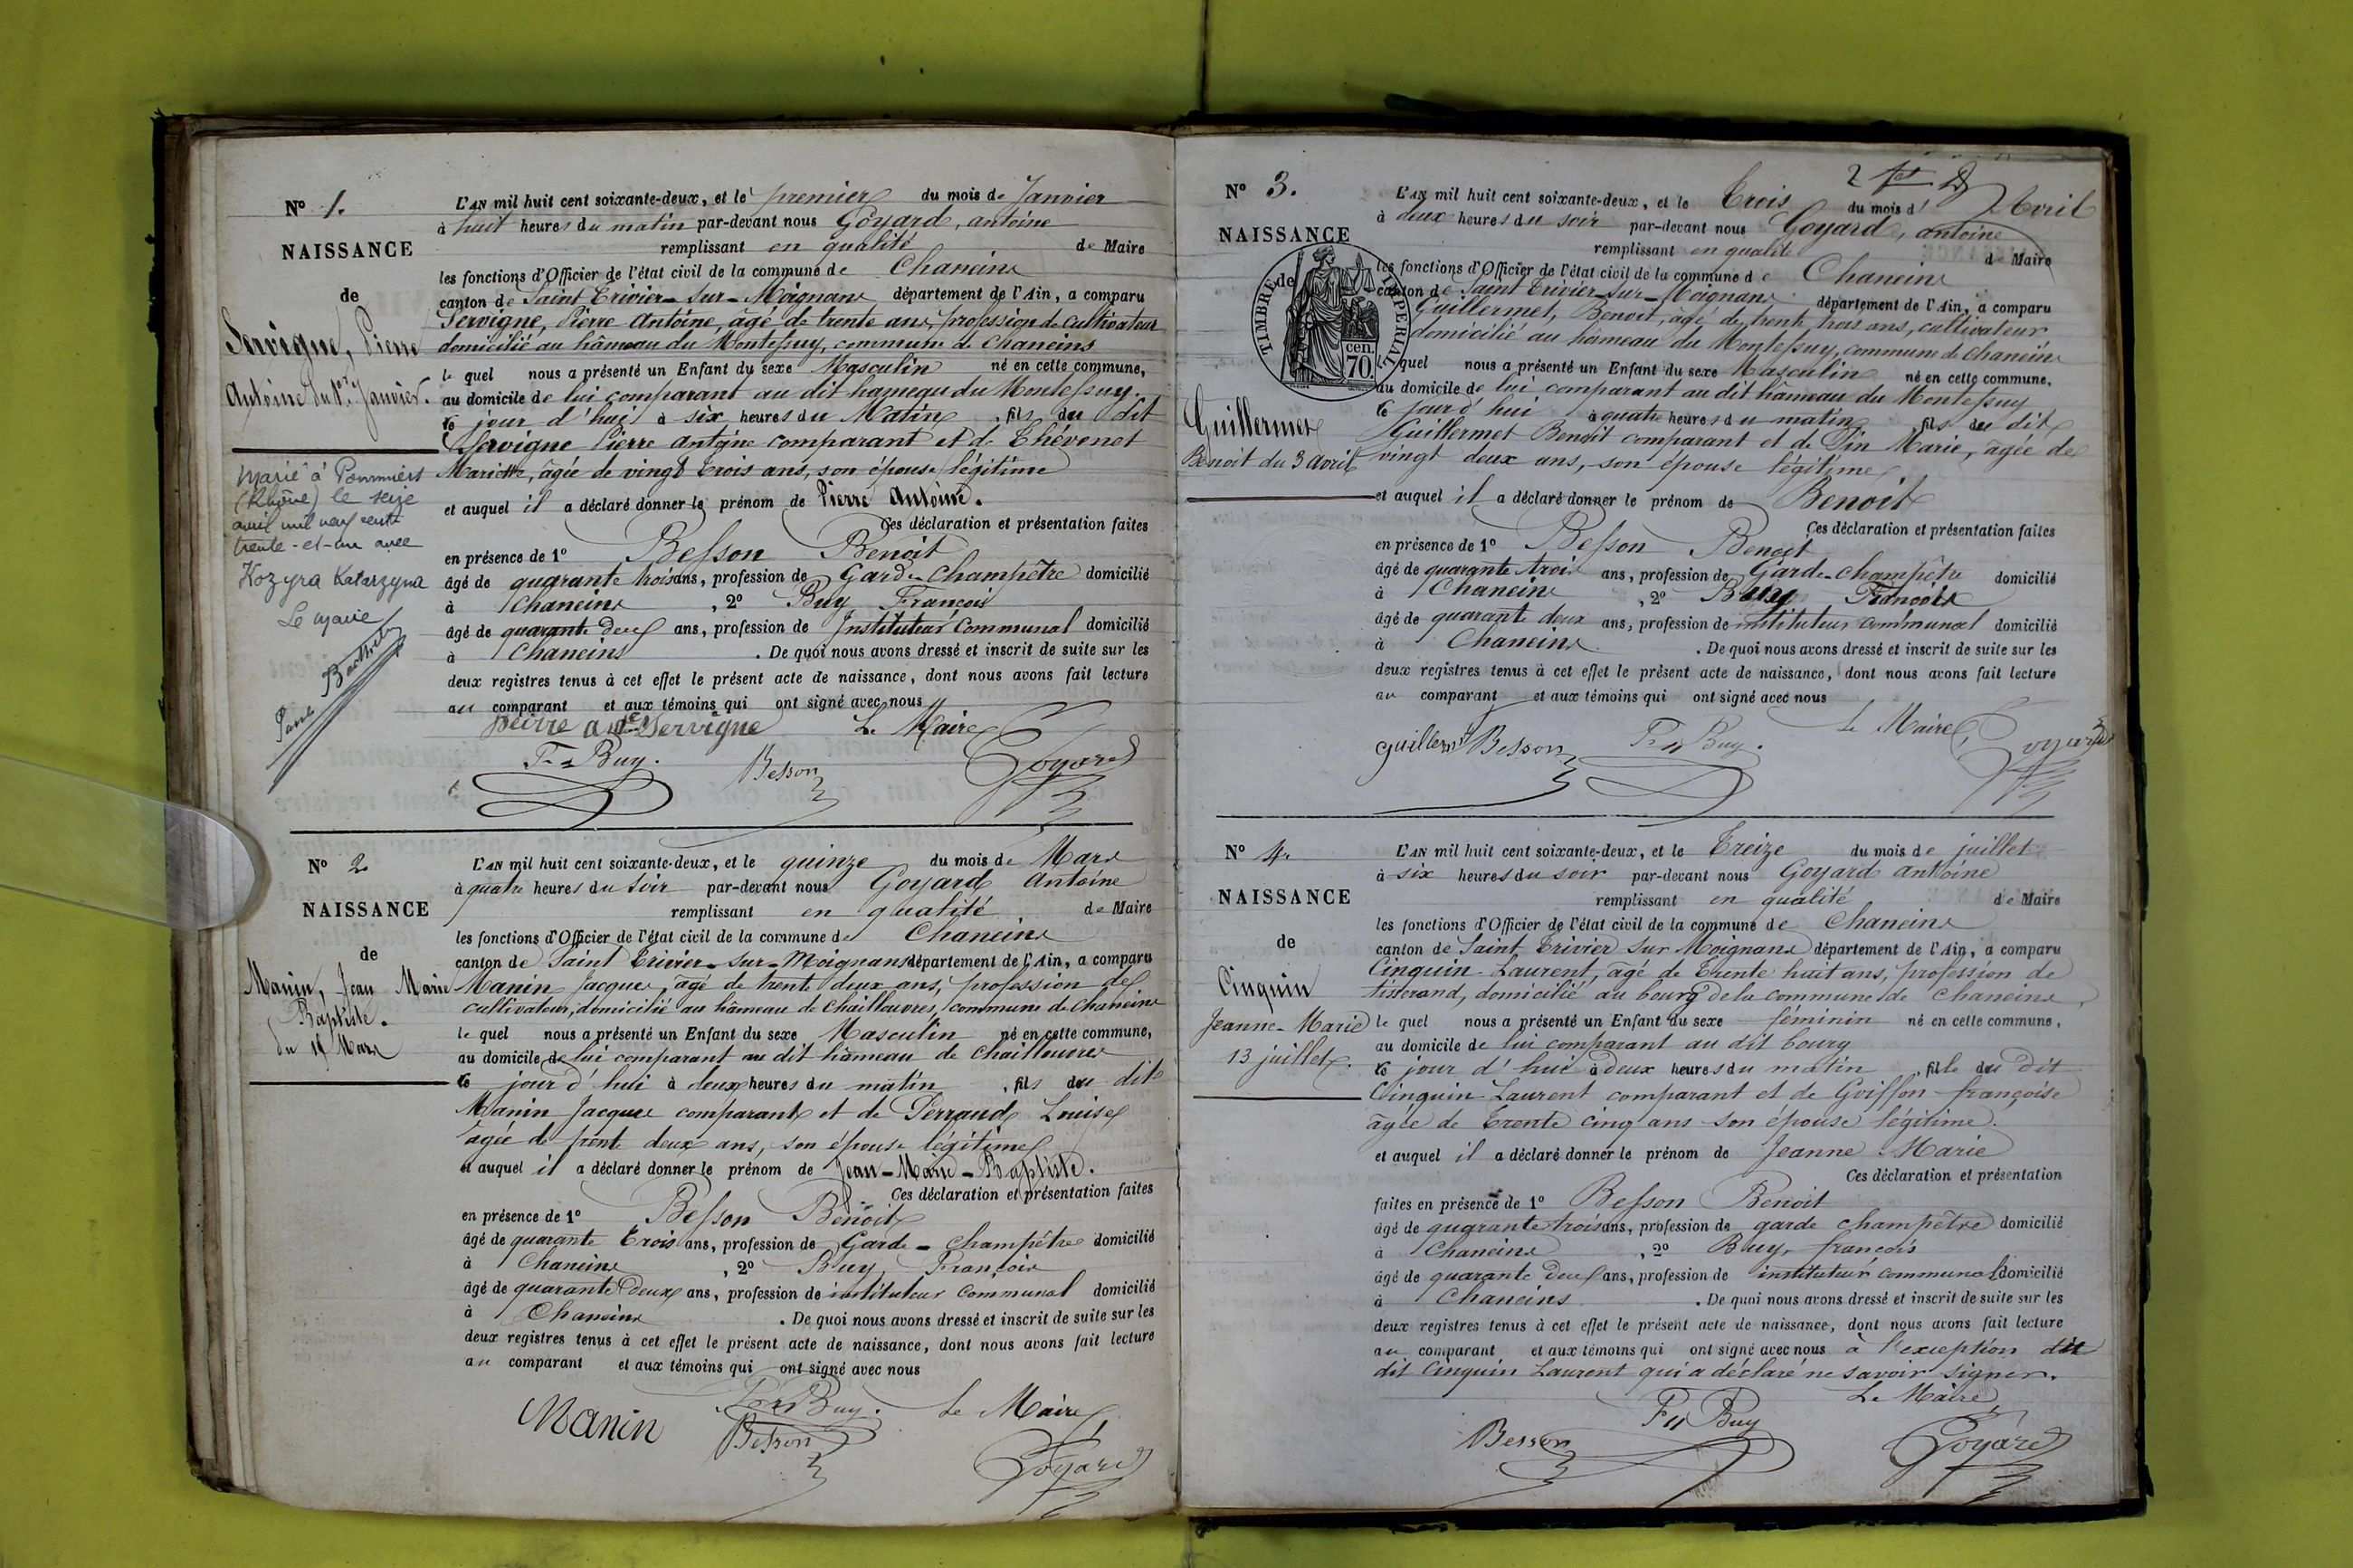 N° 1.
NAISSANCE
de
Servigne, Pierre
Antoine du 1er Janvier.
Marié à Pommiers
(Rhône) le seize
avril mil neuf cent
trente-et-un avec
Kozyra Katarzyna
Le Maire
L'AN mil huit cent soixante-deux, et le premier du mois de Janvier
à huit heures du matin par-devant nous Goyard, antoine
remplissant en qualité de Maire
les fonctions d'Officier de l'état civil de la commune de Chaneins
canton de Saint Trivier-sur-Moignans département de l'Ain, a comparu
Servigne, Pierre Antoine, âgé de trente ans, profession de cultivateur
domicilié au hâmeau du Montessuy, commune de Chaneins
le quel nous a présenté un Enfant du sexe Masculin né en cette commune,
au domicile de lui comparant au dit hameau du Montessuy.
le jour d'hui à six heures du Matin, fils du dit
Servigne Pierre antoine comparant et de Thévenot
Mariette, âgée de vingt trois ans, son épouse légitime
et auquel il a déclaré donner le prénom de Pierre Antoine.
Ces déclaration et présentation faites
en présence de 1° Besson Benoit
âgé de quarante trois ans, profession de Garde-Champêtre domicilié
à Chaneins, 2° Buy François
âgé de quarante deux ans, profession de Instituteur Communal domicilié
à Chaneins. De quoi nous avons dressé et inscrit de suite sur les
deux registres tenus à cet effet le présent acte de naissance, dont nous avons fait lecture
au comparant et aux témoins qui ont signé avec nous
Servigne Le Maire
F. Buy. Besson Goyard
N° 2
NAISSANCE
de
Manin, Jean Marie
Baptiste.
du 15 Mars
L'AN mil huit cent soixante-deux, et le quinze du mois de Mars
à quatre heures du soir par-devant nous Goyard Antoine
remplissant en qualité de Maire
les fonctions d'Officier de l'état civil de la commune de Chaneins
canton de Saint Trivier-sur-Moignans département de l'Ain, a comparu
Manin Jacques, âgé de trente deux ans, profession de
cultivateur, domicilié au hâmeau de Chailleuvres, commune de Chaneins
le quel nous a présenté un Enfant du sexe Masculin né en cette commune,
au domicile de lui comparant au dit hâmeau de Chailleuvres
le jour d'hui à deux heures du matin, fils du dit
Manin Jacques comparant et de Perraud Louise
âgée de trente deux ans, son épouse légitime
et auquel il a déclaré donner le prénom de Jean-Marie-Baptiste.
Ces déclaration et présentation faites
en présence de 1° Besson Benoit
âgé de quarante trois ans, profession de Garde-Champêtre domicilié
à Chaneins, 2° Buy, François
âgé de quarante deux ans, profession de instituteur Communal domicilié
à Chaneins. De quoi nous avons dressé et inscrit de suite sur les
deux registres tenus à cet effet le présent acte de naissance, dont nous avons fait lecture
au comparant et aux témoins qui ont signé avec nous
Manin Buy. Le Maire
Besson Goyard
N° 3.
NAISSANCE
de
TIMBRE IMPERIAL
70 cen.
Guillermet
Benoit du 3 avril
L'AN mil huit cent soixante-deux, et le Trois du mois d' Avril
à deux heures du soir par-devant nous Goyard, antoine
remplissant en qualité de Maire
les fonctions d'Officier de l'état civil de la commune de Chaneins
canton de Saint Trivier-sur-Moignans département de l'Ain, a comparu
Guillermet, Benoit, âgé de trente trois ans, cultivateur
domicilié au hâmeau du Montessuy, commune de Chaneins
le quel nous a présenté un Enfant du sexe Masculin né en cette commune,
au domicile de lui comparant au dit hâmeau du Montessuy
le jour d'hui à quatre heures du matin fils du dit
Guillermet Benoit comparant et de Pin Marie, âgée de
vingt deux ans, son épouse légitime
et auquel il a déclaré donner le prénom de Benoit
Ces déclaration et présentation faites
en présence de 1° Besson Benoit
âgé de quarante trois ans, profession de Garde-champêtre domicilié
à Chaneins, 2° Buy François
âgé de quarante deux ans, profession de instituteur communal domicilié
à Chaneins. De quoi nous avons dressé et inscrit de suite sur les
deux registres tenus à cet effet le présent acte de naissance, dont nous avons fait lecture
au comparant et aux témoins qui ont signé avec nous
Le Maire
Guillermet Besson F Buy. Goyard
N° 4.
NAISSANCE
de
Cinquin
Jeanne-Marie
13 juillet.
L'AN mil huit cent soixante-deux, et le Treize du mois de juillet
à six heures du soir par-devant nous Goyard antoine
remplissant en qualité de Maire
les fonctions d'Officier de l'état civil de la commune de Chaneins
canton de Saint Trivier sur Moignans département de l'Ain, a comparu
Cinquin Laurent, âgé de trente huit ans, profession de
tisserand, domicilié au bourg de la commune de Chaneins,
le quel nous a présenté un Enfant du sexe féminin né en cette commune,
au domicile de lui comparant au dit bourg
le jour d'hui à deux heures du matin, fille du dit
Cinquin Laurent comparant et de Goiffon françoise
âgée de trente cinq ans son épouse légitime.
et auquel il a déclaré donner le prénom de Jeanne Marie
Ces déclaration et présentation
faites en présence de 1° Besson Benoit
âgé de quarante trois ans, profession de garde champêtre domicilié
à Chaneins, 2° Buy, françois
âgé de quarante deux ans, profession de instituteur communal domicilié
à Chaneins. De quoi nous avons dressé et inscrit de suite sur les
deux registres tenus à cet effet le présent acte de naissance, dont nous avons fait lecture
au comparant et aux témoins qui ont signé avec nous à l'exception du
dit Cinquin Laurent qui a déclaré ne savoir signer.
Le Maire
Besson F Buy Goyard